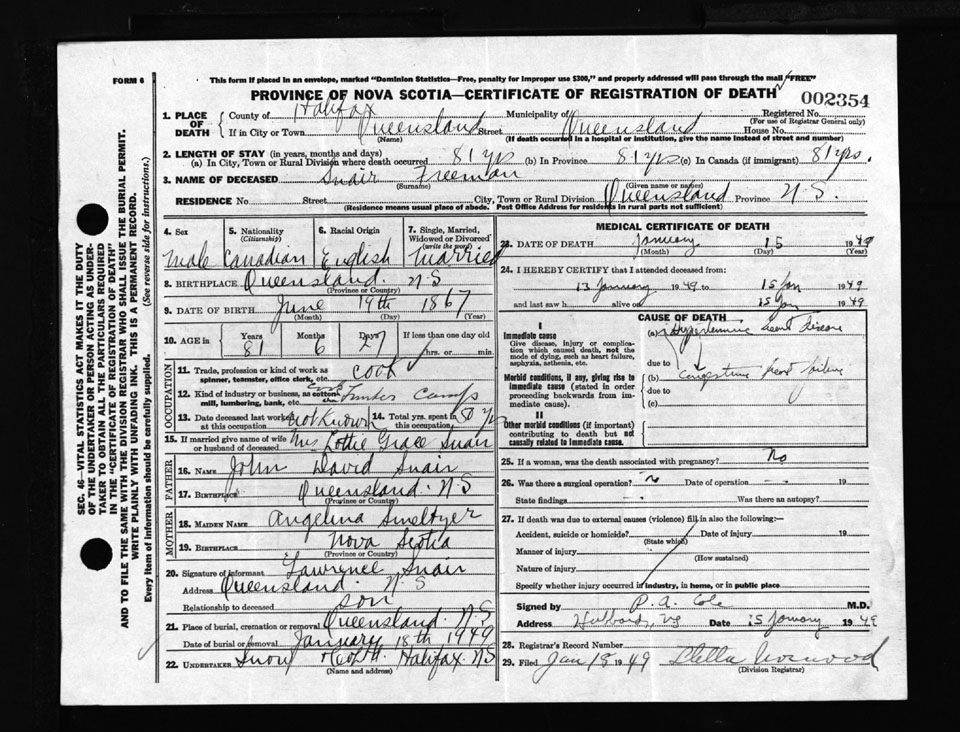 FORM 6
This form if placed in an envelope, marked "Dominion Statistics—Free, penalty for improper use $300," and properly addressed will pass through the mail "FREE"
PROVINCE OF NOVA SCOTIA—CERTIFICATE OF REGISTRATION OF DEATH
002354
1. PLACE OF DEATH
County of Halifax Municipality of Queensland Registered No.
(For use of Registrar General only)
If in City or Town Queensland Street House No.
(Name) (If death occurred in a hospital or institution, give the name instead of street and number)
2. LENGTH OF STAY (in years, months and days)
(a) In City, Town or Rural Division where death occurred 81 yrs (b) In Province 81 yrs (c) In Canada (if immigrant) 81 yrs.
3. NAME OF DECEASED Snair Freeman
(Surname) (Given name or names)
RESIDENCE No. Street City, Town or Rural Division Queensland Province N.S.
(Residence means usual place of abode. Post Office Address for residents in rural parts not sufficient)
4. Sex Male
5. Nationality (Citizenship) Canadian
6. Racial Origin English
7. Single, Married, Widowed or Divorced (write the word) Married
8. BIRTHPLACE Queensland. N.S
(Province or Country)
9. DATE OF BIRTH June 19th 1867
(Month) (Day) (Year)
10. AGE in Years 81 Months 6 Days 27 If less than one day old hrs. or min.
OCCUPATION
11. Trade, profession or kind of work as spinner, teamster, office clerk, etc. cook
12. Kind of industry or business, as cotton mill, lumbering, bank, etc. Cook Lumber Camps
13. Date deceased last worked at this occupation not Known 14. Total yrs. spent in this occupation 50 yrs
15. If married give name of wife or husband of deceased Mrs Lottie Grace Snair
FATHER
16. NAME John David Snair
17. BIRTHPLACE Queensland. N.S
(Province or Country)
MOTHER
18. MAIDEN NAME Angelina Smeltzer
19. BIRTHPLACE Nova Scotia
(Province or Country)
20. Signature of informant Lawrence Snair
Address Queensland. N.S
Relationship to deceased son
21. Place of burial, cremation or removal Queensland. N.S
Date of burial or removal January 18th 1949
22. UNDERTAKER Snow & Co Ltd. Halifax. N.S
(Name and address)
MEDICAL CERTIFICATE OF DEATH
23. DATE OF DEATH January 15 1949
(Month) (Day) (Year)
24. I HEREBY CERTIFY that I attended deceased from:
13 January 1949 to 15 Jan 1949
and last saw h alive on 15 Jan 1949
CAUSE OF DEATH
I
Immediate cause
Give disease, injury or complication which caused death, not the mode of dying, such as heart failure, asphyxia, asthenia, etc.
(a) Hypertensive heart disease
due to
Morbid conditions, if any, giving rise to immediate cause (stated in order proceeding backwards from immediate cause).
(b) Congestive heart failure
due to
(c)
II
Other morbid conditions (if important) contributing to death but not causally related to immediate cause.
25. If a woman, was the death associated with pregnancy? No
26. Was there a surgical operation? no Date of operation 19
State findings Was there an autopsy?
27. If death was due to external causes (violence) fill in also the following:—
Accident, suicide or homicide? Date of injury 19
(State which)
Manner of injury
(How sustained)
Nature of injury
Specify whether injury occurred in industry, in home, or in public place
Signed by P. A. Cole M.D.
Address Hubbards, NS Date 15 January 1949
28. Registrar's Record Number
29. Filed Jan 18 1949 Stella Norwood
(Division Registrar)
SEC. 46—VITAL STATISTICS ACT MAKES IT THE DUTY
OF THE UNDERTAKER OR PERSON ACTING AS UNDER-
TAKER TO OBTAIN ALL THE PARTICULARS REQUIRED
IN THE "CERTIFICATE OF REGISTRATION OF DEATH"
AND TO FILE THE SAME WITH THE DIVISION REGISTRAR WHO SHALL ISSUE THE BURIAL PERMIT.
WRITE PLAINLY WITH UNFADING INK. THIS IS A PERMANENT RECORD.
Every item of information should be carefully supplied. (See reverse side for instructions.)